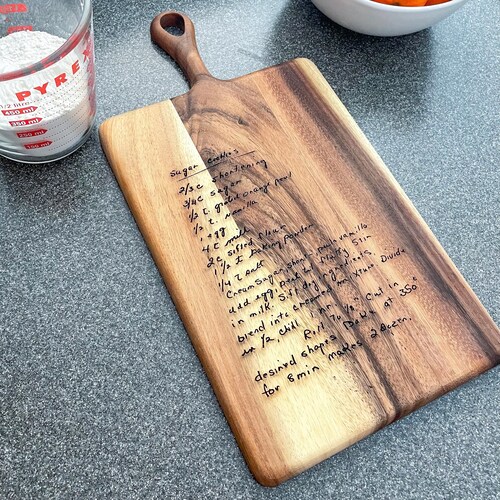 PYREX
1/2 litre
450 ml
350 ml
250 ml
150 ml
Sugar Cookies
2/3 c shortening
3/4 c sugar
1/2 t. grated orange peel
1/2 t. vanilla
1 egg
4 t milk
2 c sifted flour
1 1/2 t baking powder
1/4 t salt
Cream sugar, shortening, peel, vanilla
add egg, beat til fluffy. Stir
in milk. Sift dry ingredients,
blend into creamed mixture. Divide
in 1/2, chill
Roll Cut in
desired shapes at 350°
for 8 min makes 2 dozen.